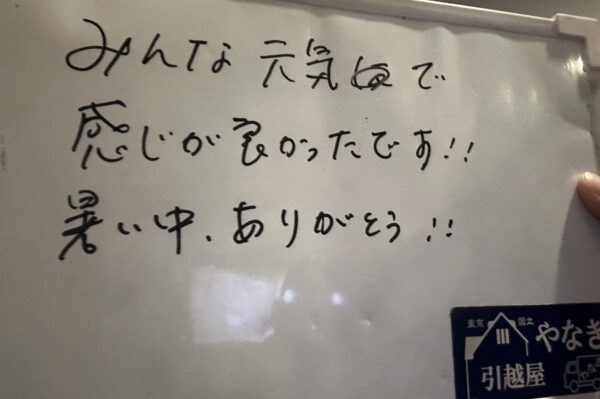 みんな元気で
感じが良かったです!!
暑い中、ありがとう!!
東京 国立
やなぎ
引越屋